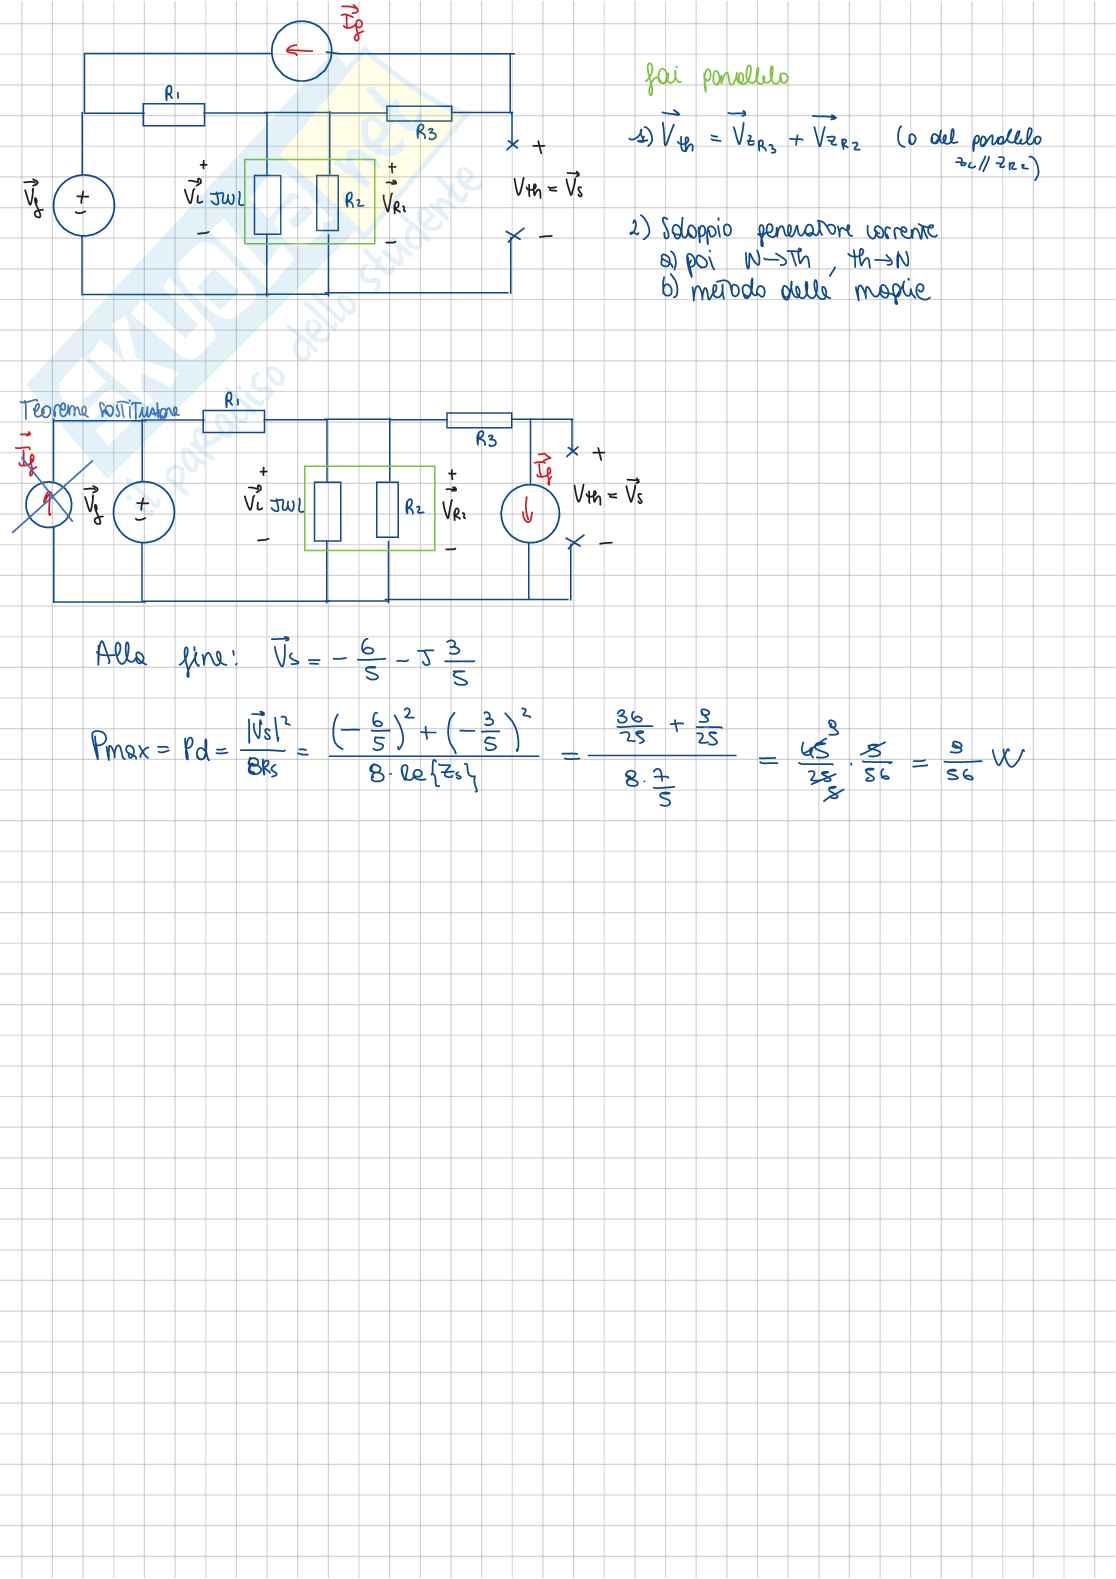 I⃗g
R1
R3
+
V⃗g
+
-
+
V⃗L JWL
-
R2
+
V⃗R2
-
Vth = V⃗s
-
fai parallelo
1) V⃗th = V⃗ZR3 + V⃗ZR2 (o del parallelo
ZL // ZR2)
2) Sdoppio generatore corrente
a) poi N→Th, th→N
b) metodo delle maglie
SKUOLA.net
il paradiso dello studente
Teorema sostituzione
I⃗g
R1
R3
V⃗g
+
-
+
V⃗L JWL
-
R2
+
V⃗R2
-
I⃗g
+
Vth = V⃗s
-
Alla fine: V⃗s = - 6/5 - J 3/5
Pmax = Pd = |V⃗s|²/8Rs = ((-6/5)² + (-3/5)²)/(8·Re{Zs}) = (36/25 + 9/25)/(8·7/5) = 45/25 9 5 · 5/56 = 9/56 W